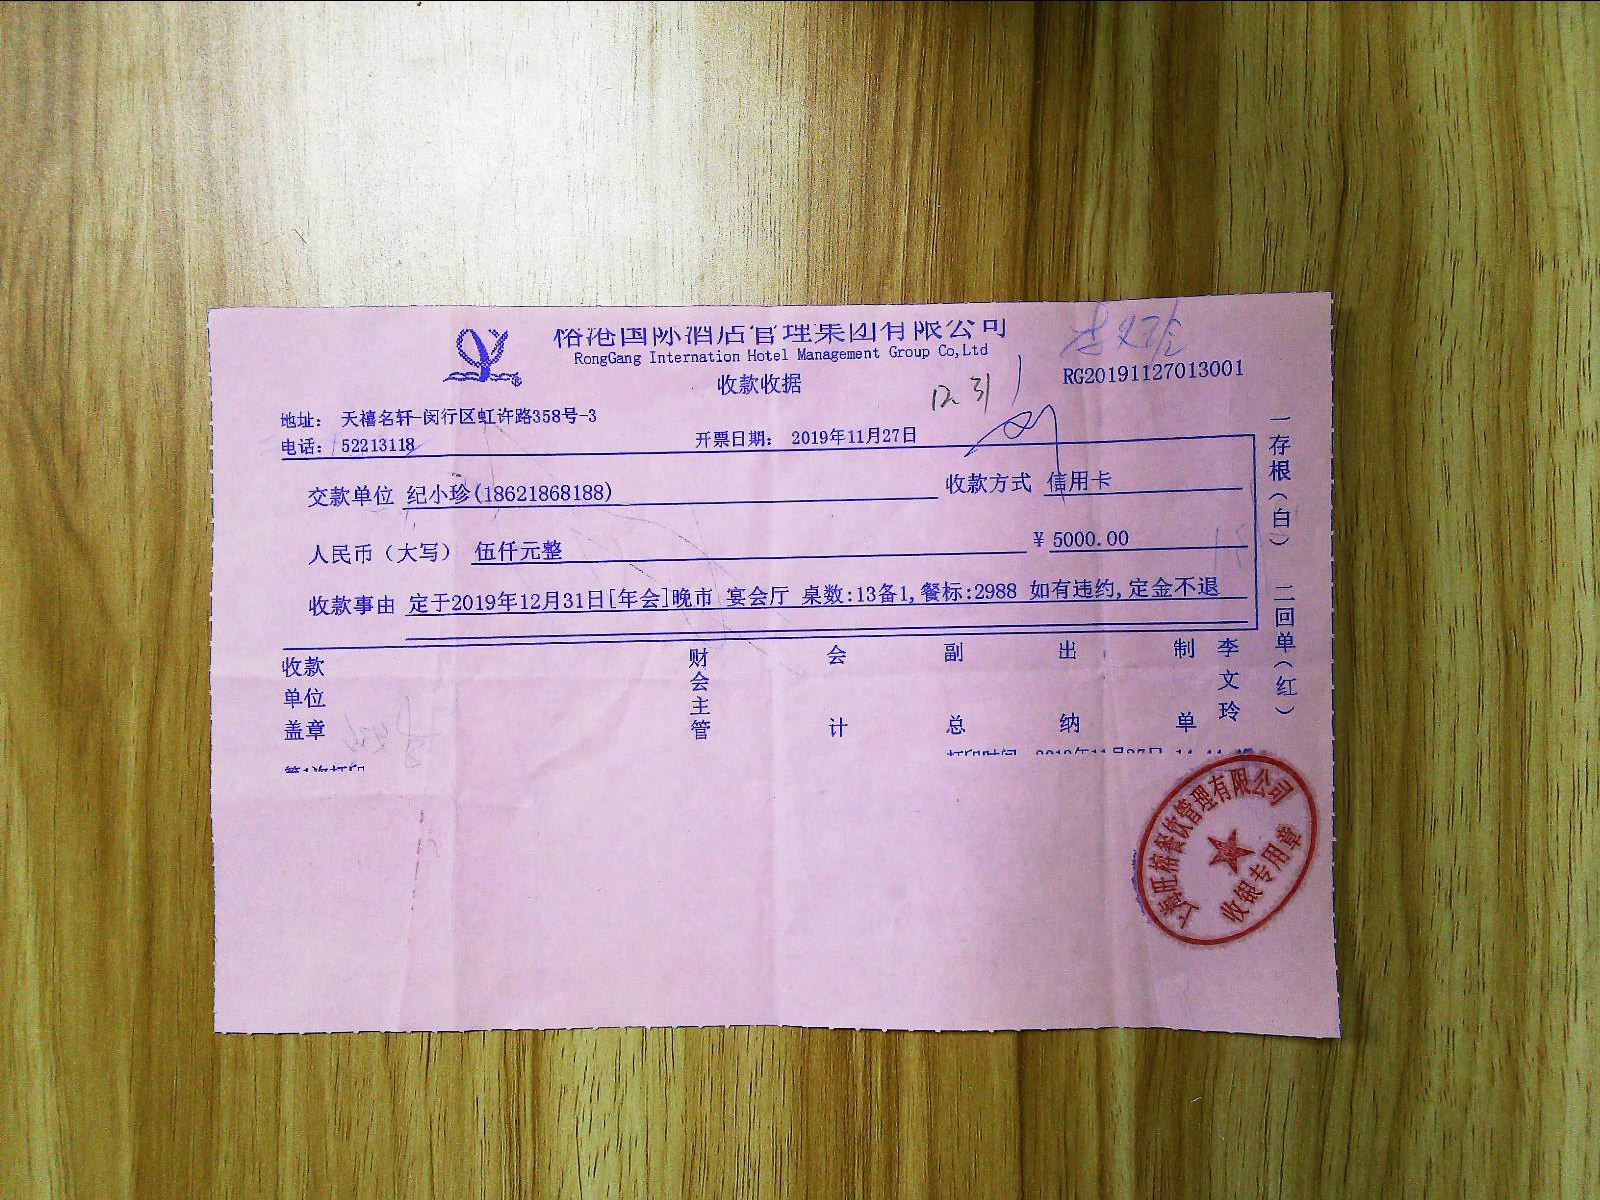 榕港国际酒店管理集团有限公司
RongGang Internation Hotel Management Group Co,Ltd
收款收据
12.31
RG20191127013001
地址: 天禧名轩-闵行区虹许路358号-3
电话: 52213118
开票日期: 2019年11月27日
交款单位 纪小珍(18621868188)
收款方式 信用卡
人民币（大写） 伍仟元整
¥ 5000.00
收款事由 定于2019年12月31日[年会]晚市 宴会厅 桌数:13备1,餐标:2988 如有违约,定金不退
一存根(白) 二回单(红)
收款单位盖章
财会主管
会计
副总
出纳
制单
李文玲
打印时间
第1次打印
上海旺榕餐饮管理有限公司
收银专用章